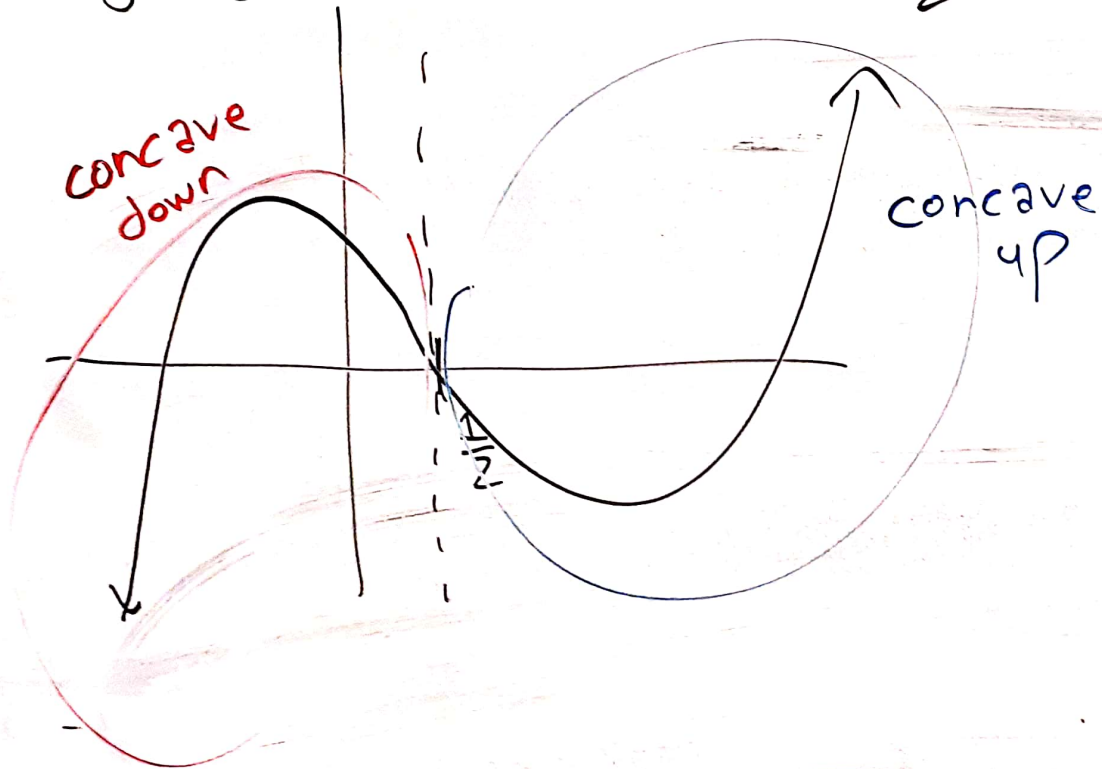 concave
down
concave
up
1/2